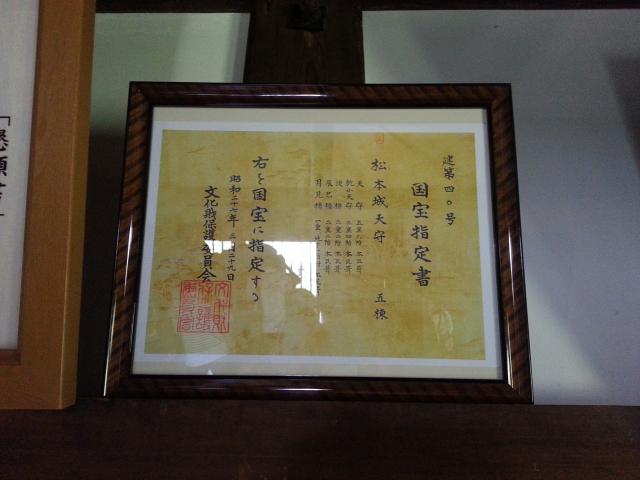 建第四〇号
国宝指定書
松本城天守 五棟
天守 五重六階 本瓦葺
乾小天守 三重四階 本瓦葺
渡櫓 二重二階 本瓦葺
辰巳櫓 二重二階 本瓦葺
月見櫓
右を国宝に指定する
昭和二十七年三月二十九日
文化財保護委員会